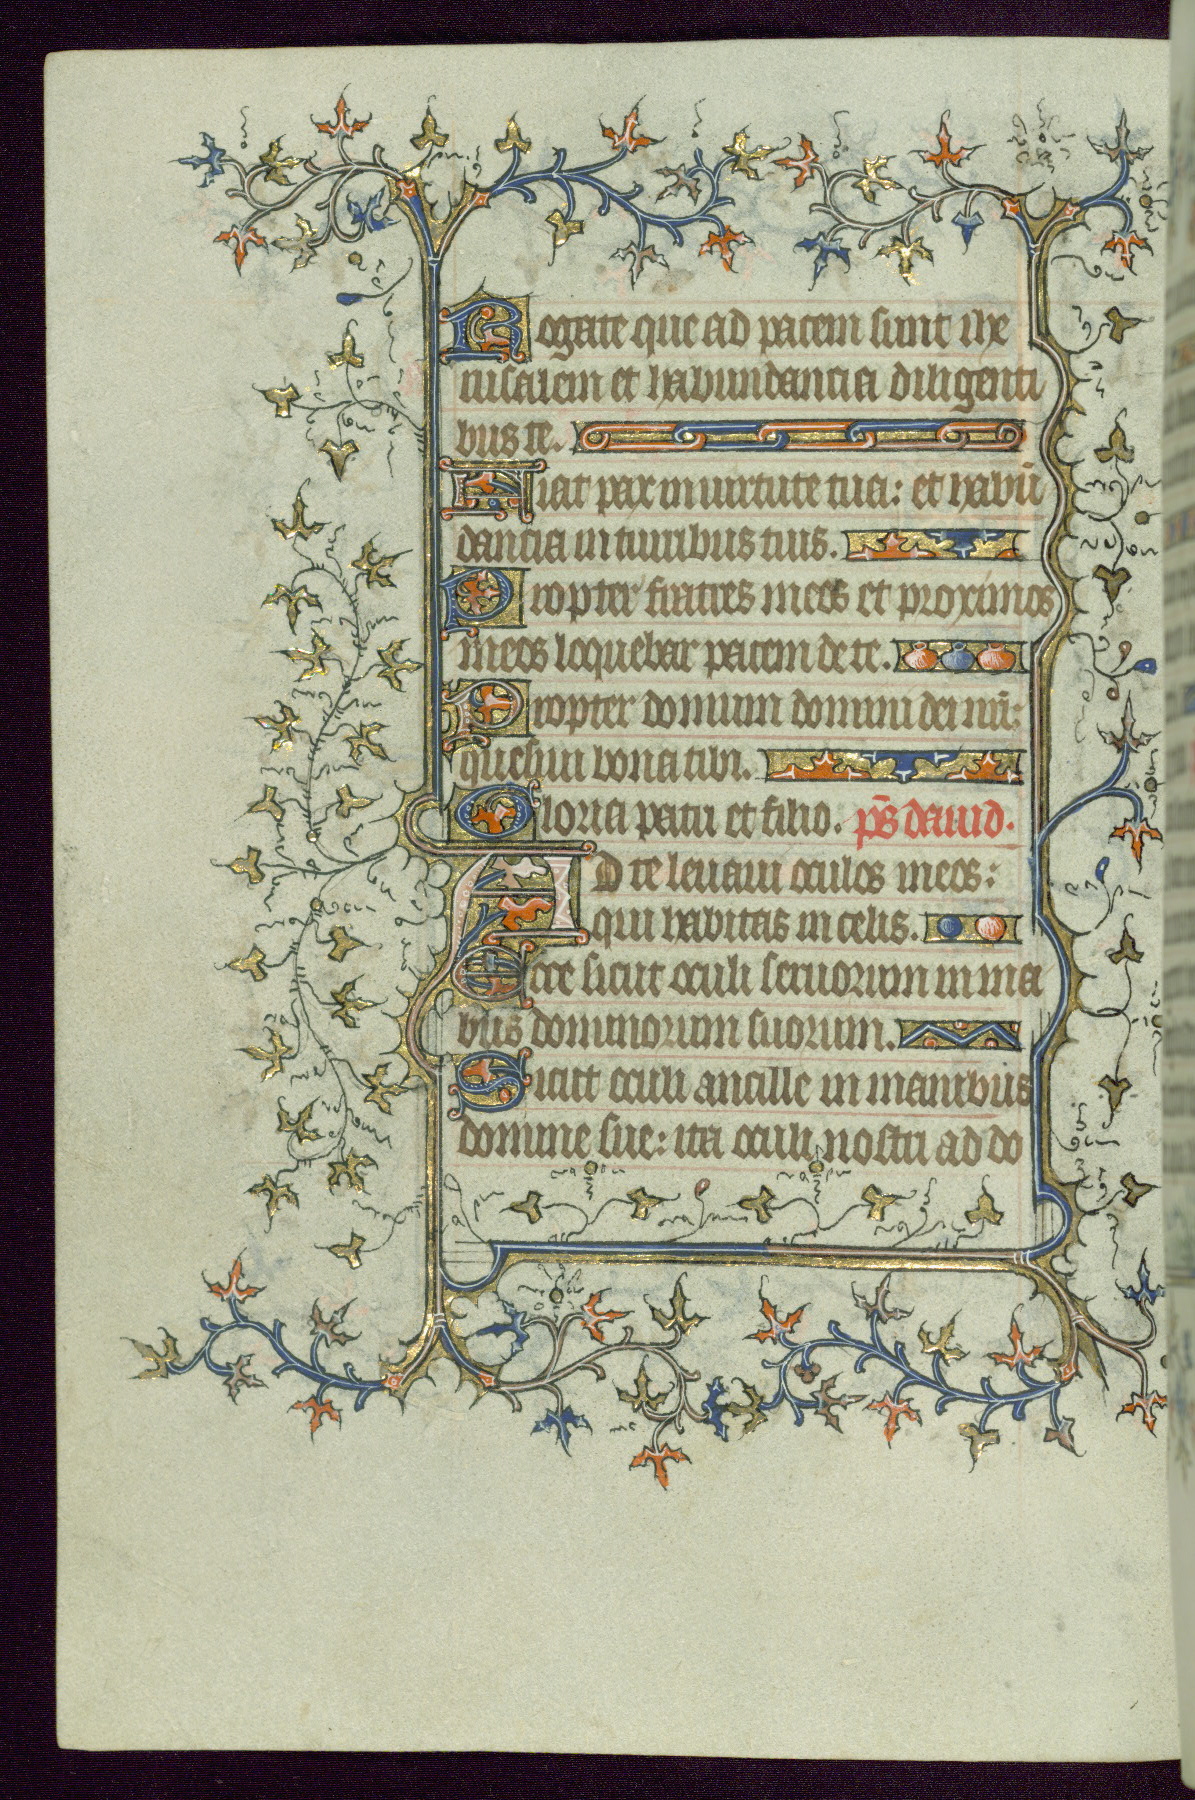 Rogate que ad pacem sunt ihe
rusalem et habundancia diligenti
bus te.
Fiat pax in uirtute tua: et habū
dancia in turribus tuis.
Propter fratres meos et proximos
meos loquebar pacem de te.
Propter domum domini dei nrī:
quesiui bona tibi.
Gloria patri et filio. ps̄ dauid.
AD te leuaui oculos meos:
qui habitas in celis.
Ecce sicut oculi seruorum in ma
bus dominorum suorum.
Sicut oculi ancille in manibus
domine sue: ita oculi nostri ad do